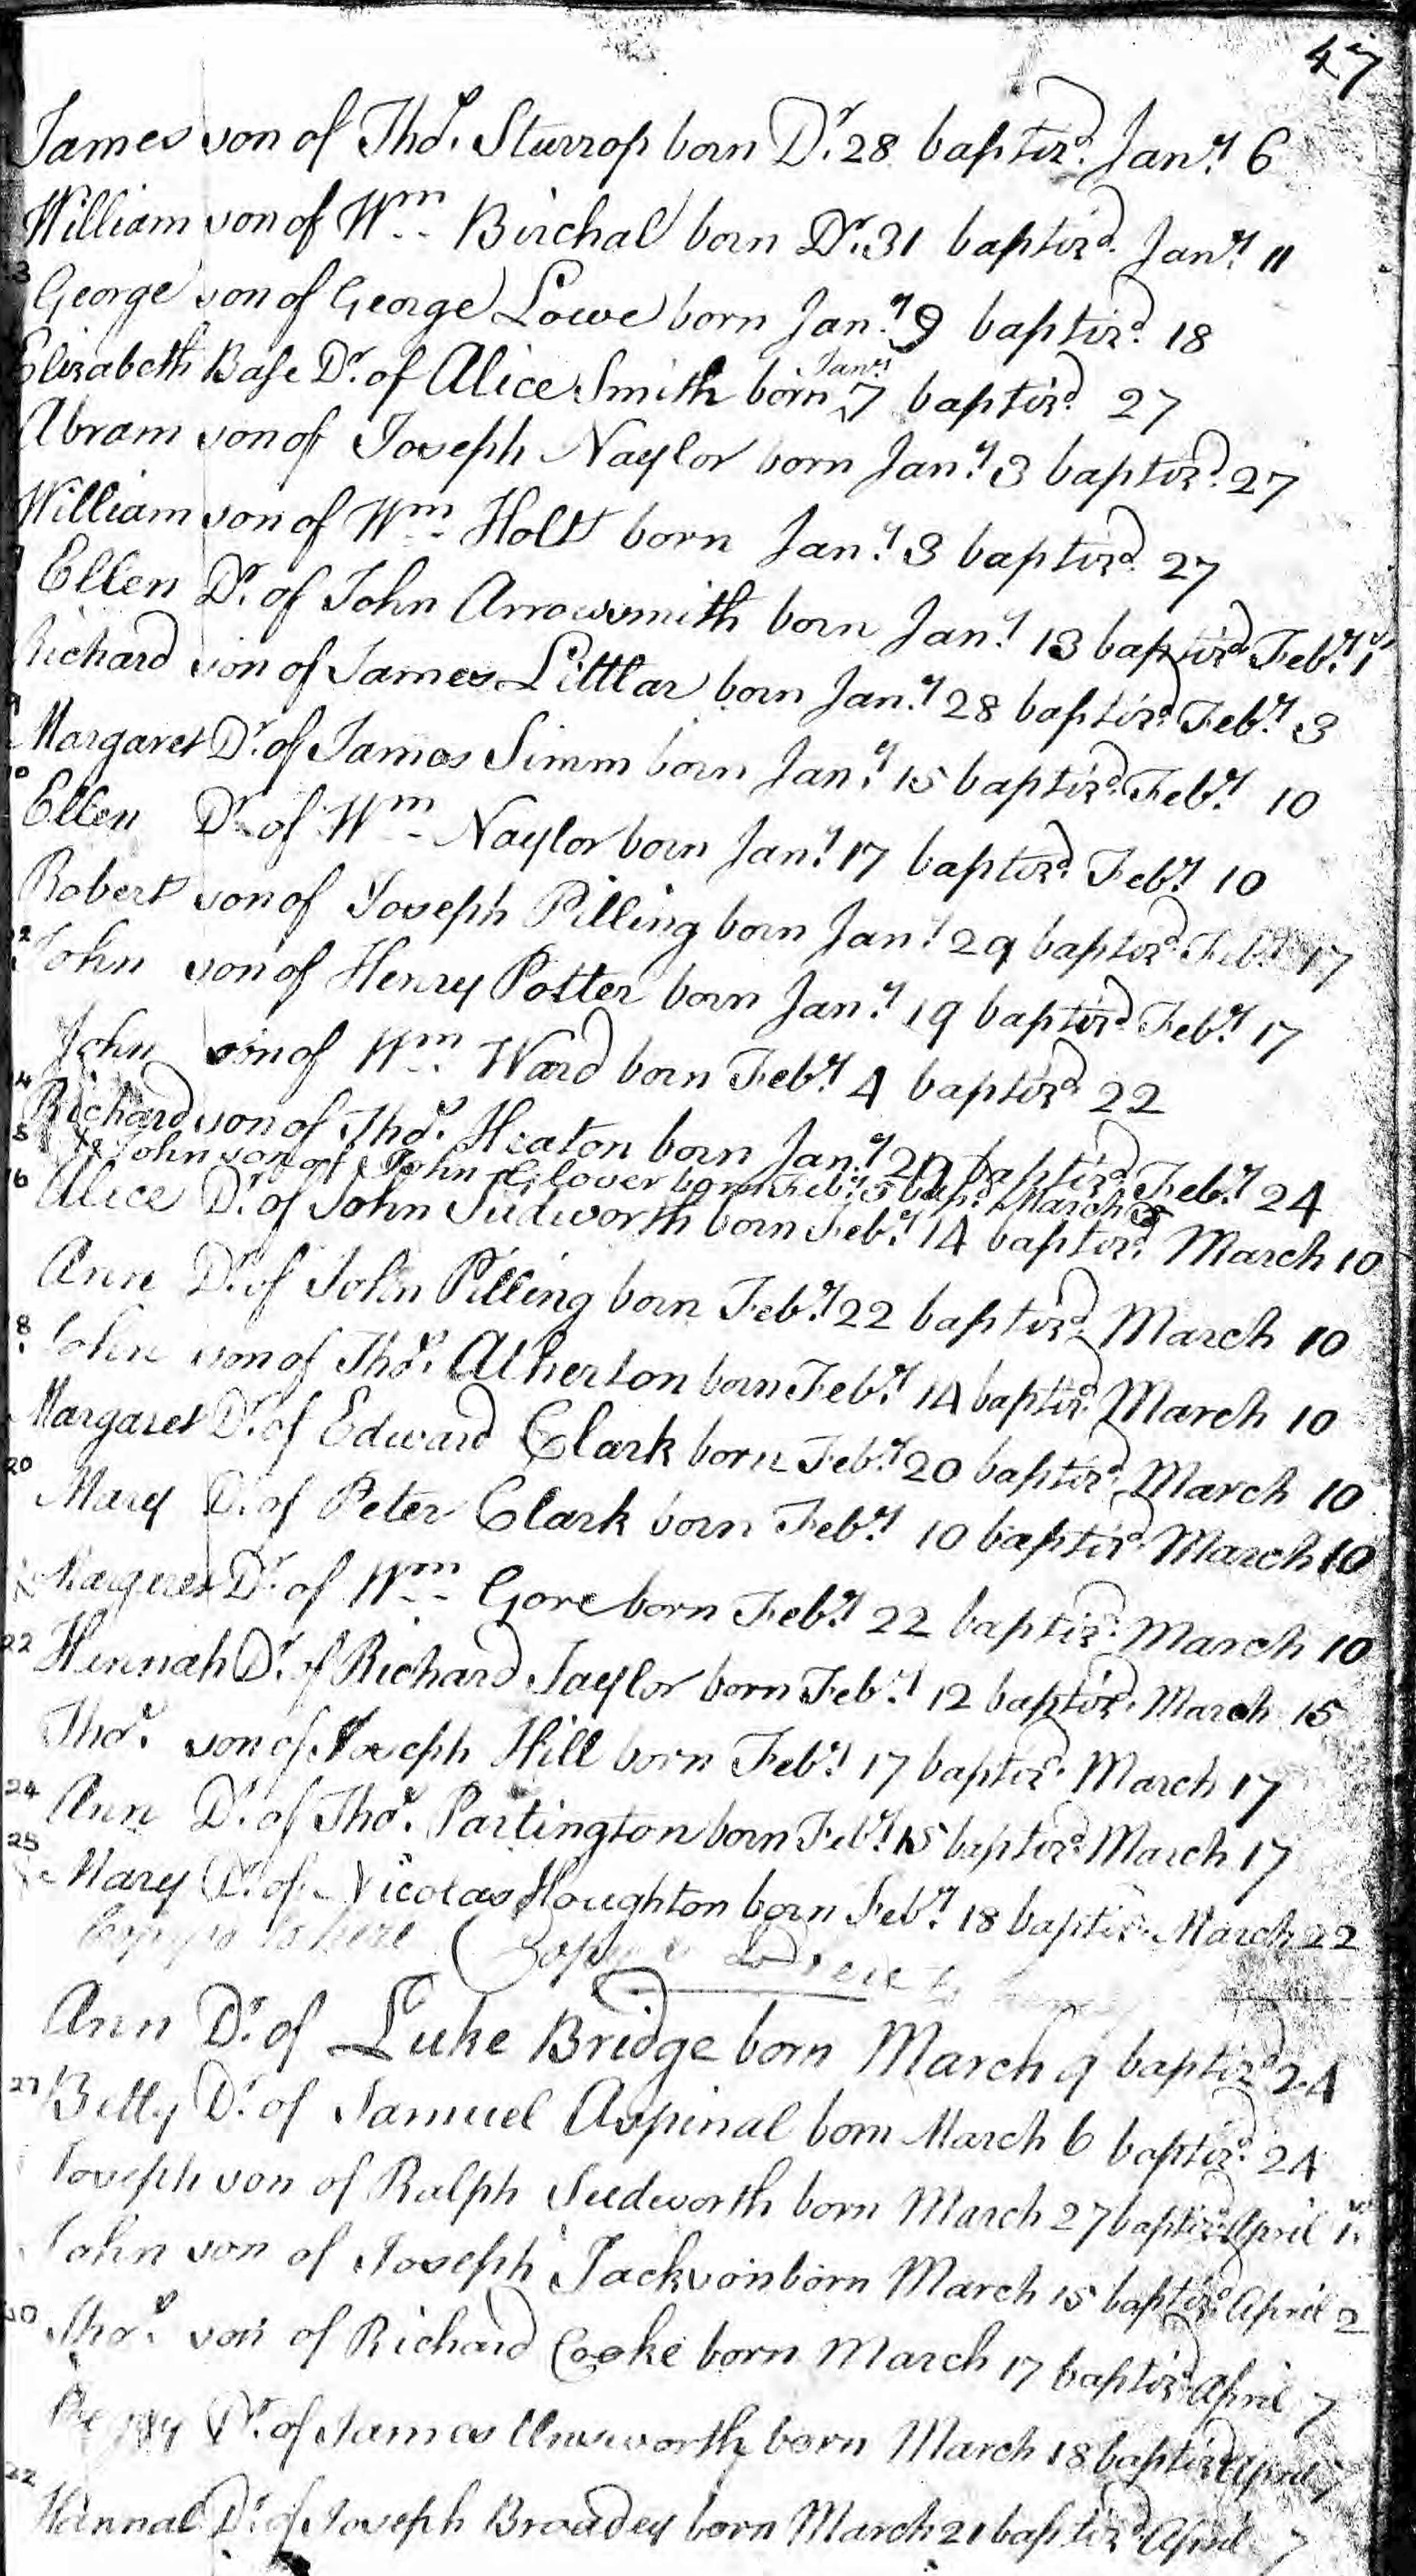 47
James son of Thos. Sturrop born Dr. 28 baptizd. Jany. 6
William son of Wm. Birchal born Dr. 31 baptizd. Jany. 11
3 George son of George Lowe born Jany. 9 baptizd. 18
Elizabeth Base Dr. of Alice Smith born Jany. 7 baptizd. 27
Abram son of Joseph Naylor born Jany. 3 baptizd. 27
William son of Wm. Holt born Jany. 3 baptizd. 27
Ellen Dr. of John Arrowsmith born Jany. 13 baptizd. Feby. 1st
Richard son of James Littlar born Jany. 28 baptizd. Feby. 3
Margaret Dr. of James Simm born Jany. 15 baptizd. Feby. 10
10 Ellen Dr. of Wm. Naylor born Jany. 17 baptizd. Feby. 10
Robert son of Joseph Pilling born Jany. 29 baptizd. Feby. 17
12 John son of Henry Potter born Jany. 19 baptizd. Feby. 17
John son of Wm. Ward born Feby. 4 baptizd. 22
14 Richard son of Thos. Heaton born Jany. 29 baptizd. Feby. 24
5 John son of John Glover born Feby. 5 bapd. March
16 Alice Dr. of John Sudworth born Feby. 14 baptizd. March 10
Ann Dr. of John Pilling born Feby. 22 baptizd. March 10
18 John son of Thos. Atherton born Feby. 14 baptizd. March 10
Margaret Dr. of Edward Clark born Feby. 20 baptizd. March 10
20 Mary Dr. of Peter Clark born Feby. 10 baptizd. March 10
Margaret Dr. of Wm. Gore born Feby. 22 baptizd. March 10
22 Hennah Dr. of Richard Taylor born Feby. 12 baptizd. March 15
Thos. son of Joseph Hill born Feby. 17 baptizd. March 17
24 Ann Dr. of Thos. Partington born Feby. 15 baptizd. March 17
25 Mary Dr. of Nicolas Houghton born Feby. 18 baptizd. March 22
to here
Ann Dr. of Luke Bridge born March 9 baptizd. 24
27 Betty Dr. of Samuel Aspinal born March 6 baptizd. 24
Joseph son of Ralph Sudworth born March 27 baptizd. April 1st
John son of Joseph Jackson born March 15 baptizd. April 2
30 Thos. son of Richard Cooke born March 17 baptizd. April 7
Peggy Dr. of James Unsworth born March 18 baptizd. April 7
32 Hannah Dr. of Joseph Broadey born March 21 baptizd. April 7